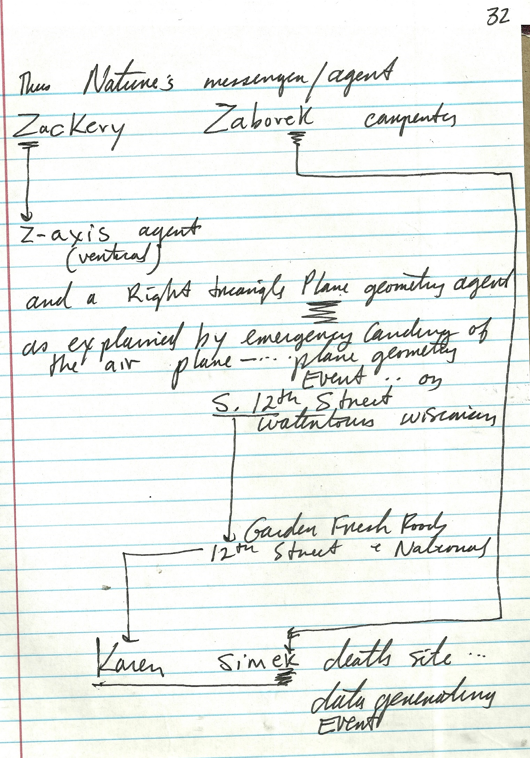 32
Thus Nature's messenger/agent
Zackery Zaborek carpenter
Z-axis agent
(vertical)
and a Right triangle Plane geometry agent
as explained by emergency landing of
the air plane —.... plane geometry
Event .. on
S. 12th Street
Watertown Wisconsin
Garden Fresh Foods
12th Street & National
Karen Simek death site ...
data generating
Event